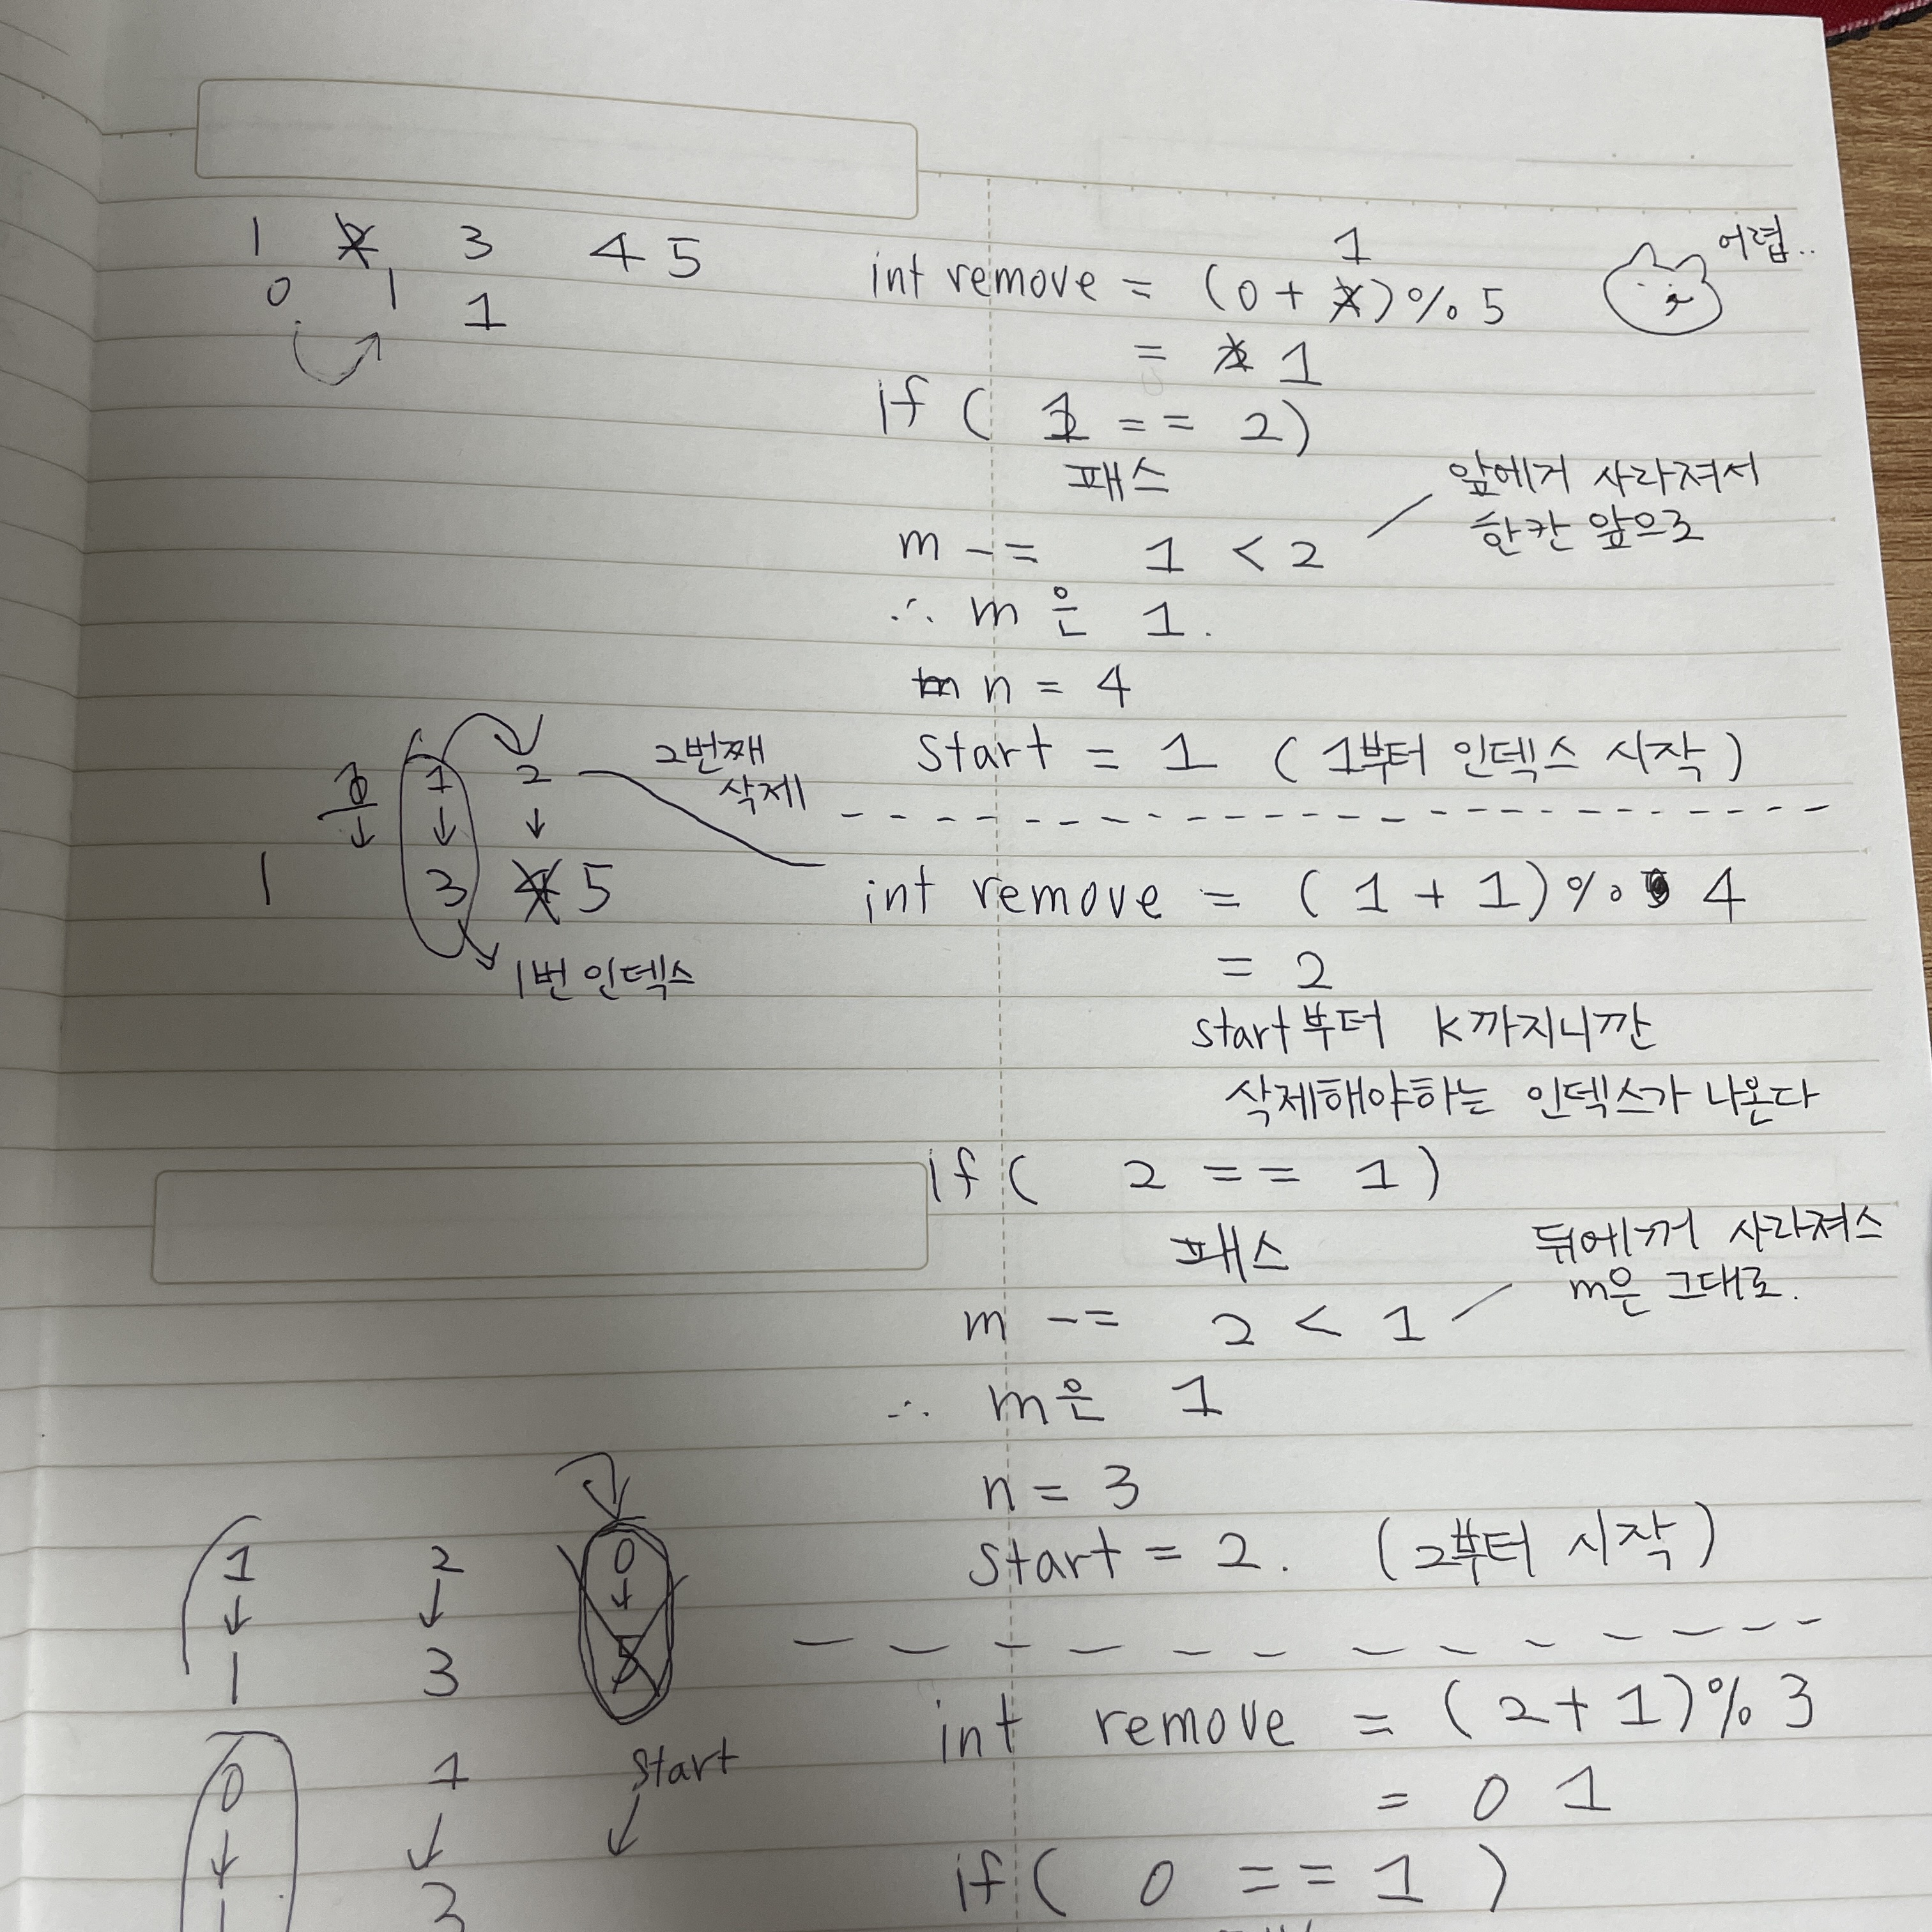 1 2 3 4 5
0 1 1
int remove = (0 + 1) % 5
어렵..
= 1
if ( 1 == 2)
패스
m -= 1 < 2
앞에거 사라져서
한칸 앞으로
∴ m은 1.
n = 4
start = 1 (1부터 인덱스 시작)
0 1 2
2번째
삭제
1 3 4 5
1번 인덱스
int remove = (1 + 1) % 4
= 2
start부터 k까지니깐
삭제해야하는 인덱스가 나온다
if ( 2 == 1)
패스
m -= 2 < 1
뒤에꺼 사라져스
m은 그대로.
∴ m은 1
n = 3
start = 2. (2부터 시작)
1 2 0
1 3 5
int remove = (2+1)%3
= 0 1
0 1 start
if( 0 == 1 )
1 3